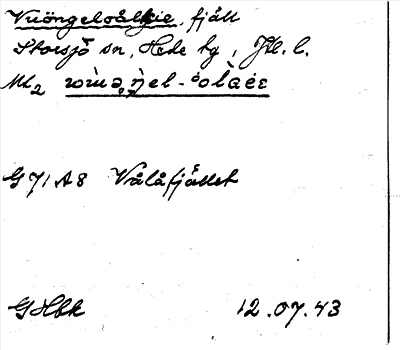 Vuöngelsålkie, fjäll
Storsjö sn, Hede tg, Jtl. l.
ML2
G 71 A8 Vålåfjället
GHbk 12.07.43